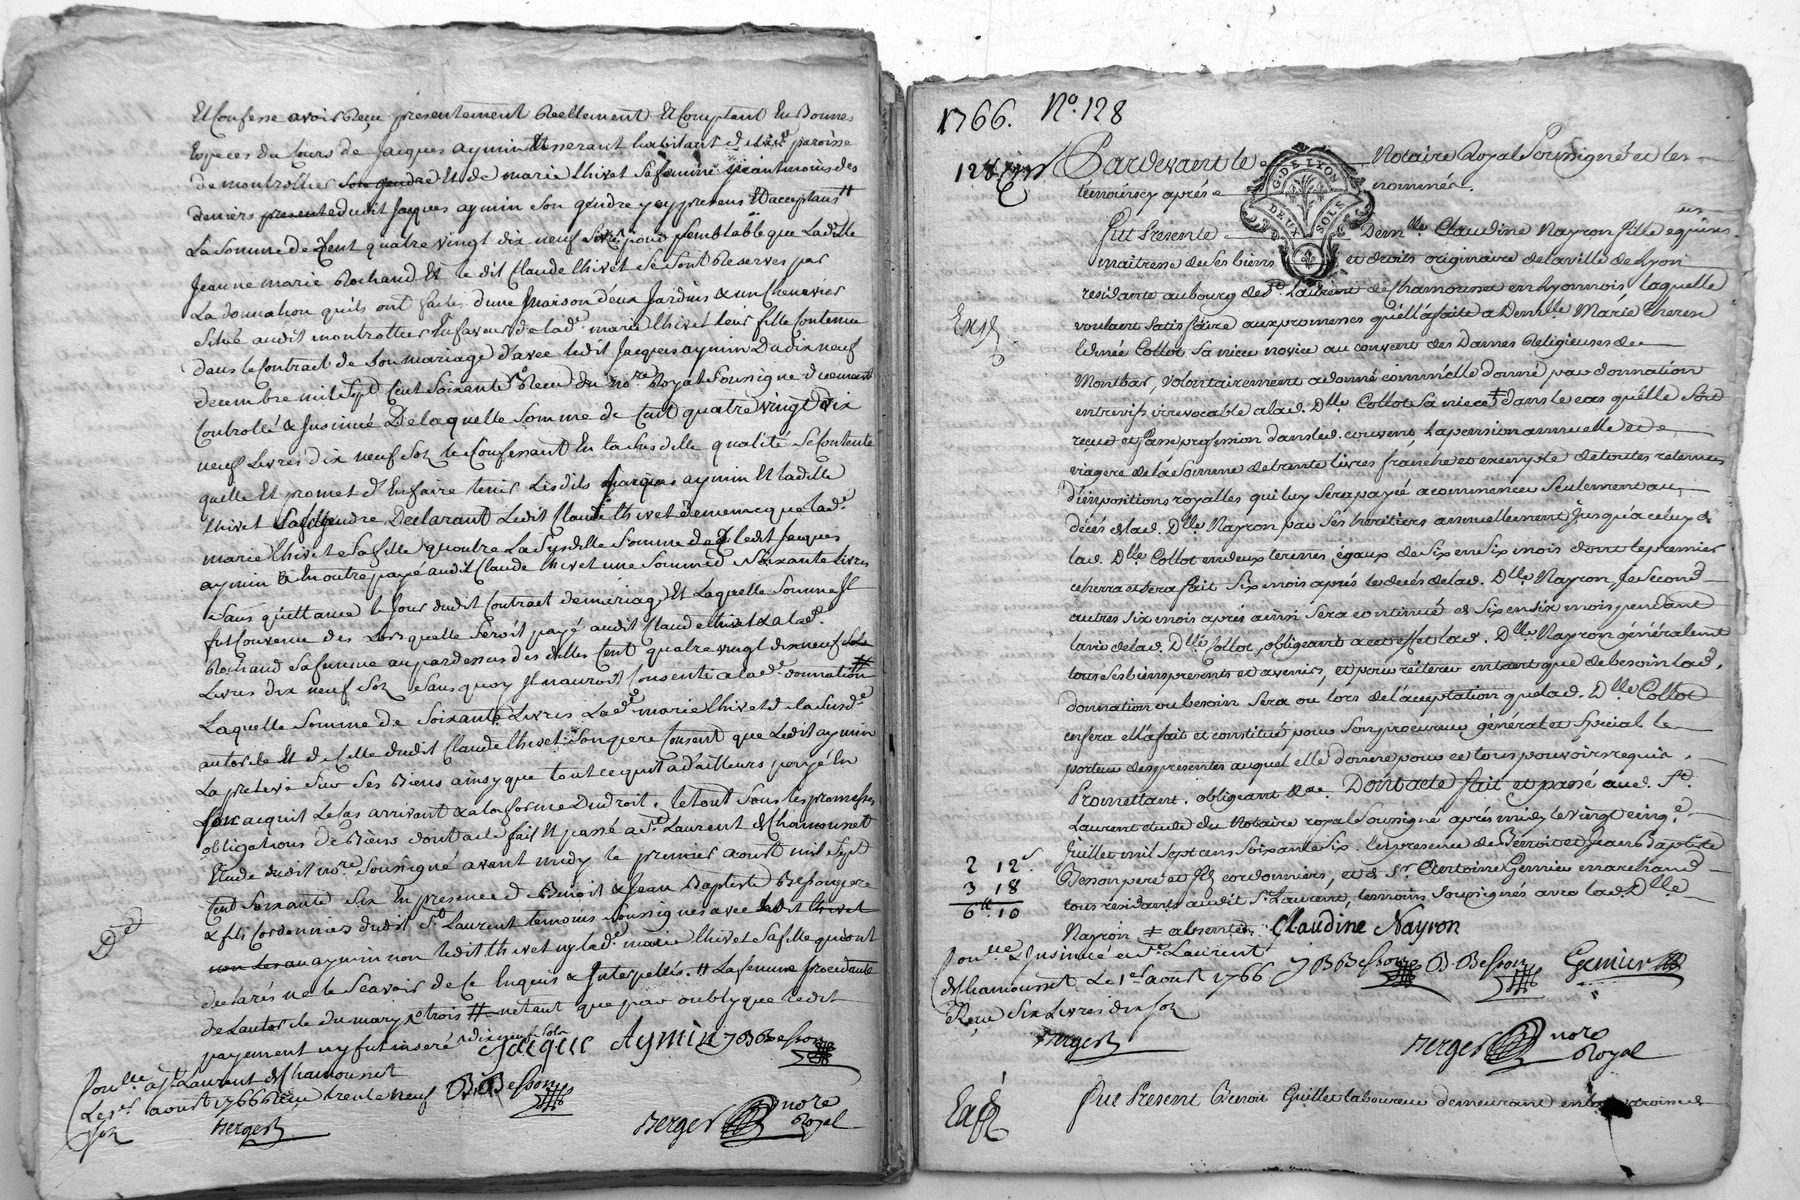 Et Confesse avoir Reçu presentement Reellement Et Comptant En Bonnes
Especes du Cours de Jacques aymin tisserant habitant de paroisse
de montrottier son gendre Et de marie thivet Sa femme des
deniers dudit Jacques aymin Son gendre y cy presens Et acceptans
La Somme de Cent quatre vingt dix neuf Livres pour semblable que Ladite
Jeanne marie Rochand Et le dit Claude thivet se sont Reservés par
La donnation quils ont faites d'une Maison deux Jardins & un Chenevier
Situé audit montrottier En faveur de lade. marie thivet leur fille Contenue
dans le Contract de Son mariage d'avec ledit Jacques aymin Du dix neuf
decembre mil Sept Cent Soixante Recu du nore. Royal Soussigne
Controllé & Insinué De laquelle Somme de Cent quatre vingt dix
neuf Livres dix neuf Sols le Confessant En la Susditte qualité Se Contente
quitte Et promet d'En faire tenir Lesdits Jacques aymin Et ladite
thivet Declarant Ledit Claude thivet de meme que lade.
marie thivet Sa fille quoutre La Susditte Somme ledit Jacques
aymin a En outre payé audit Claude thivet une Somme de Soixante Livres
Sans quittance le Jour dudit Contract de mariage Et Laquelle Somme Il
fut Convenu des Lors quelle Seroit payé audit Claude thivet & a lad.
Rochand Sa femme au pardessus des dittes Cent quatre vingt dix neuf
Livres dix neuf Sols Sans quoy Il n'auroit Consenti a lade. donnation
Laquelle Somme de Soixante Livres Lade. marie thivet de la Susde.
autorité Et de Celle dudit Claude thivet Son pere Consent que Ledit aymin
La preleve Sur Ses Biens ainsy que tout ce quil a d'ailleurs payé En
acquit Le Cas arrivant & a la forme Du droit. Le tout Sous les promesses
obligations de Biens dont acte fait Et passé a St. Laurent de Chamousset
Etude dudit nore. Soussigné avant midy le premier aoust mil Sept
Cent Soixante Six En presence de Benoit & Jean Baptiste Besson pere
& fils Cordonniers dudit St. Laurent temoins Soussignes avec
aymin non ledit thivet ny lade. marie thivet Sa fille qui ont
declarés ne le Scavoir de Ce Enquis & Interpellés. # La femme procedante
de Lautorité du mary trois # netant que par oubly que Ledit
payement ny fut inseré dix neuf Sols
Jacque Aymin JB Besson
Conlle. a St. Laurent de Chamousset
Le 1er. aoust 1766 Recu trente neuf B. Besson
Sols Berger Berger nore Royal
De
1766. No. 128
Pardevant le Notaire Royal Soussigné et les
temoins cy aprés nommés.
G. DE LYON
DEUX SOLS
Fut Presente Demlle. Claudine Nayron fille
maitresse de Ses biens et droits originaire de la ville de Lyon
residante au bourg de St. Laurent de Chamousset en Lyonnois laquelle
voulant Satisfaire aux promesses qu'elle a faite a Demlle. Marie Therese
Collot Sa niece novice au couvent des Dames Religieuses de
Montbar, volontairement a donné comm'elle donne par donnation
entrevifs irrevocable a lad. Dlle. Collot Sa niece ‡ dans le cas qu'elle Soit
receue et fasse profession dans led. couvent la pension annuelle et
viagere de la Somme de trente livres franche et exempte de toutes retenues
d'impositions royalles qui luy Sera payée a commencer Seulement au
décés de lad. Dlle. Nayron par Ses héritiers annuellement Jusqu'a celuy de
lad. Dlle. Collot en deux termes égaux de Six en Six mois dont le premier
echerra et Sera fait Six mois aprés le decés de lad. Dlle. Nayron, le Second
autres Six mois aprés ainsi Sera continué de Six en six mois pendant
la vie de lad. Dlle. Collot, obligeant a cet effet lad. Dlle. Nayron généralement
tous Ses biens presents et avenirs, et pour reiterer en tant que de besoin lad.
donnation ou besoin Sera ou lors de l'acceptation que lad. Dlle. Collot
en fera elle a fait et constitué pour Son procureur général et Spécial le
porteur des presentes auquel elle donne pour ce tous pouvoirs requis.
Promettant. obligeant &ae. Dont acte fait et passé aud. St.
Laurent etude du Notaire royal Soussigné aprés midy le vingt cinq
Juillet mil Sept cens Soixante Six En presence de Benoit et Jean Baptiste
Besson pere et fils cordonniers, et de Sr. Antoine Gemier marchand
tous residants audit St. Laurent, temoins Soussignés avec lad. Dlle.
Nayron ‡ absente. Claudine Nayron
2 12s
3 18
6tt. 10
Conlle. & Insinué a St. Laurent
de Chamousset Le 1er. aoust 1766 JB Besson B. Besson Gemier
Recu Six Livres dix Sols
Berger Berger nore Royal
Fut Present Benoit Guillet laboureur demeurant en la paroisse